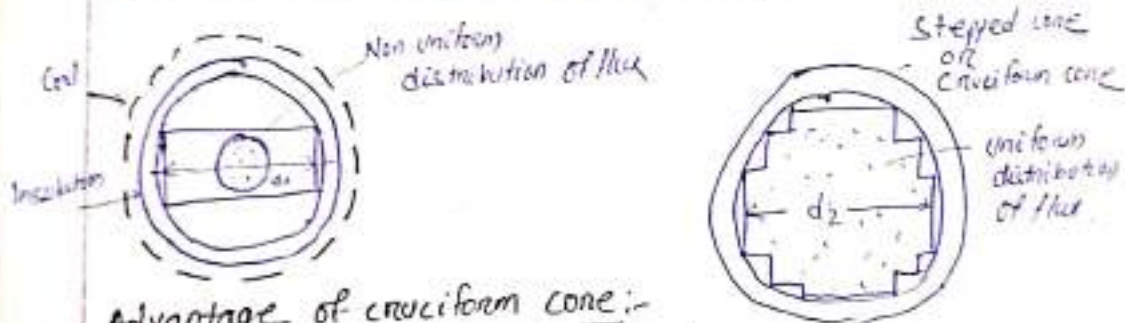 Coil
Non uniform
distribution of flux
Insulation
Stepped core
or
cruciform core
uniform
distribution
of flux
d2
Advantage of cruciform core:-